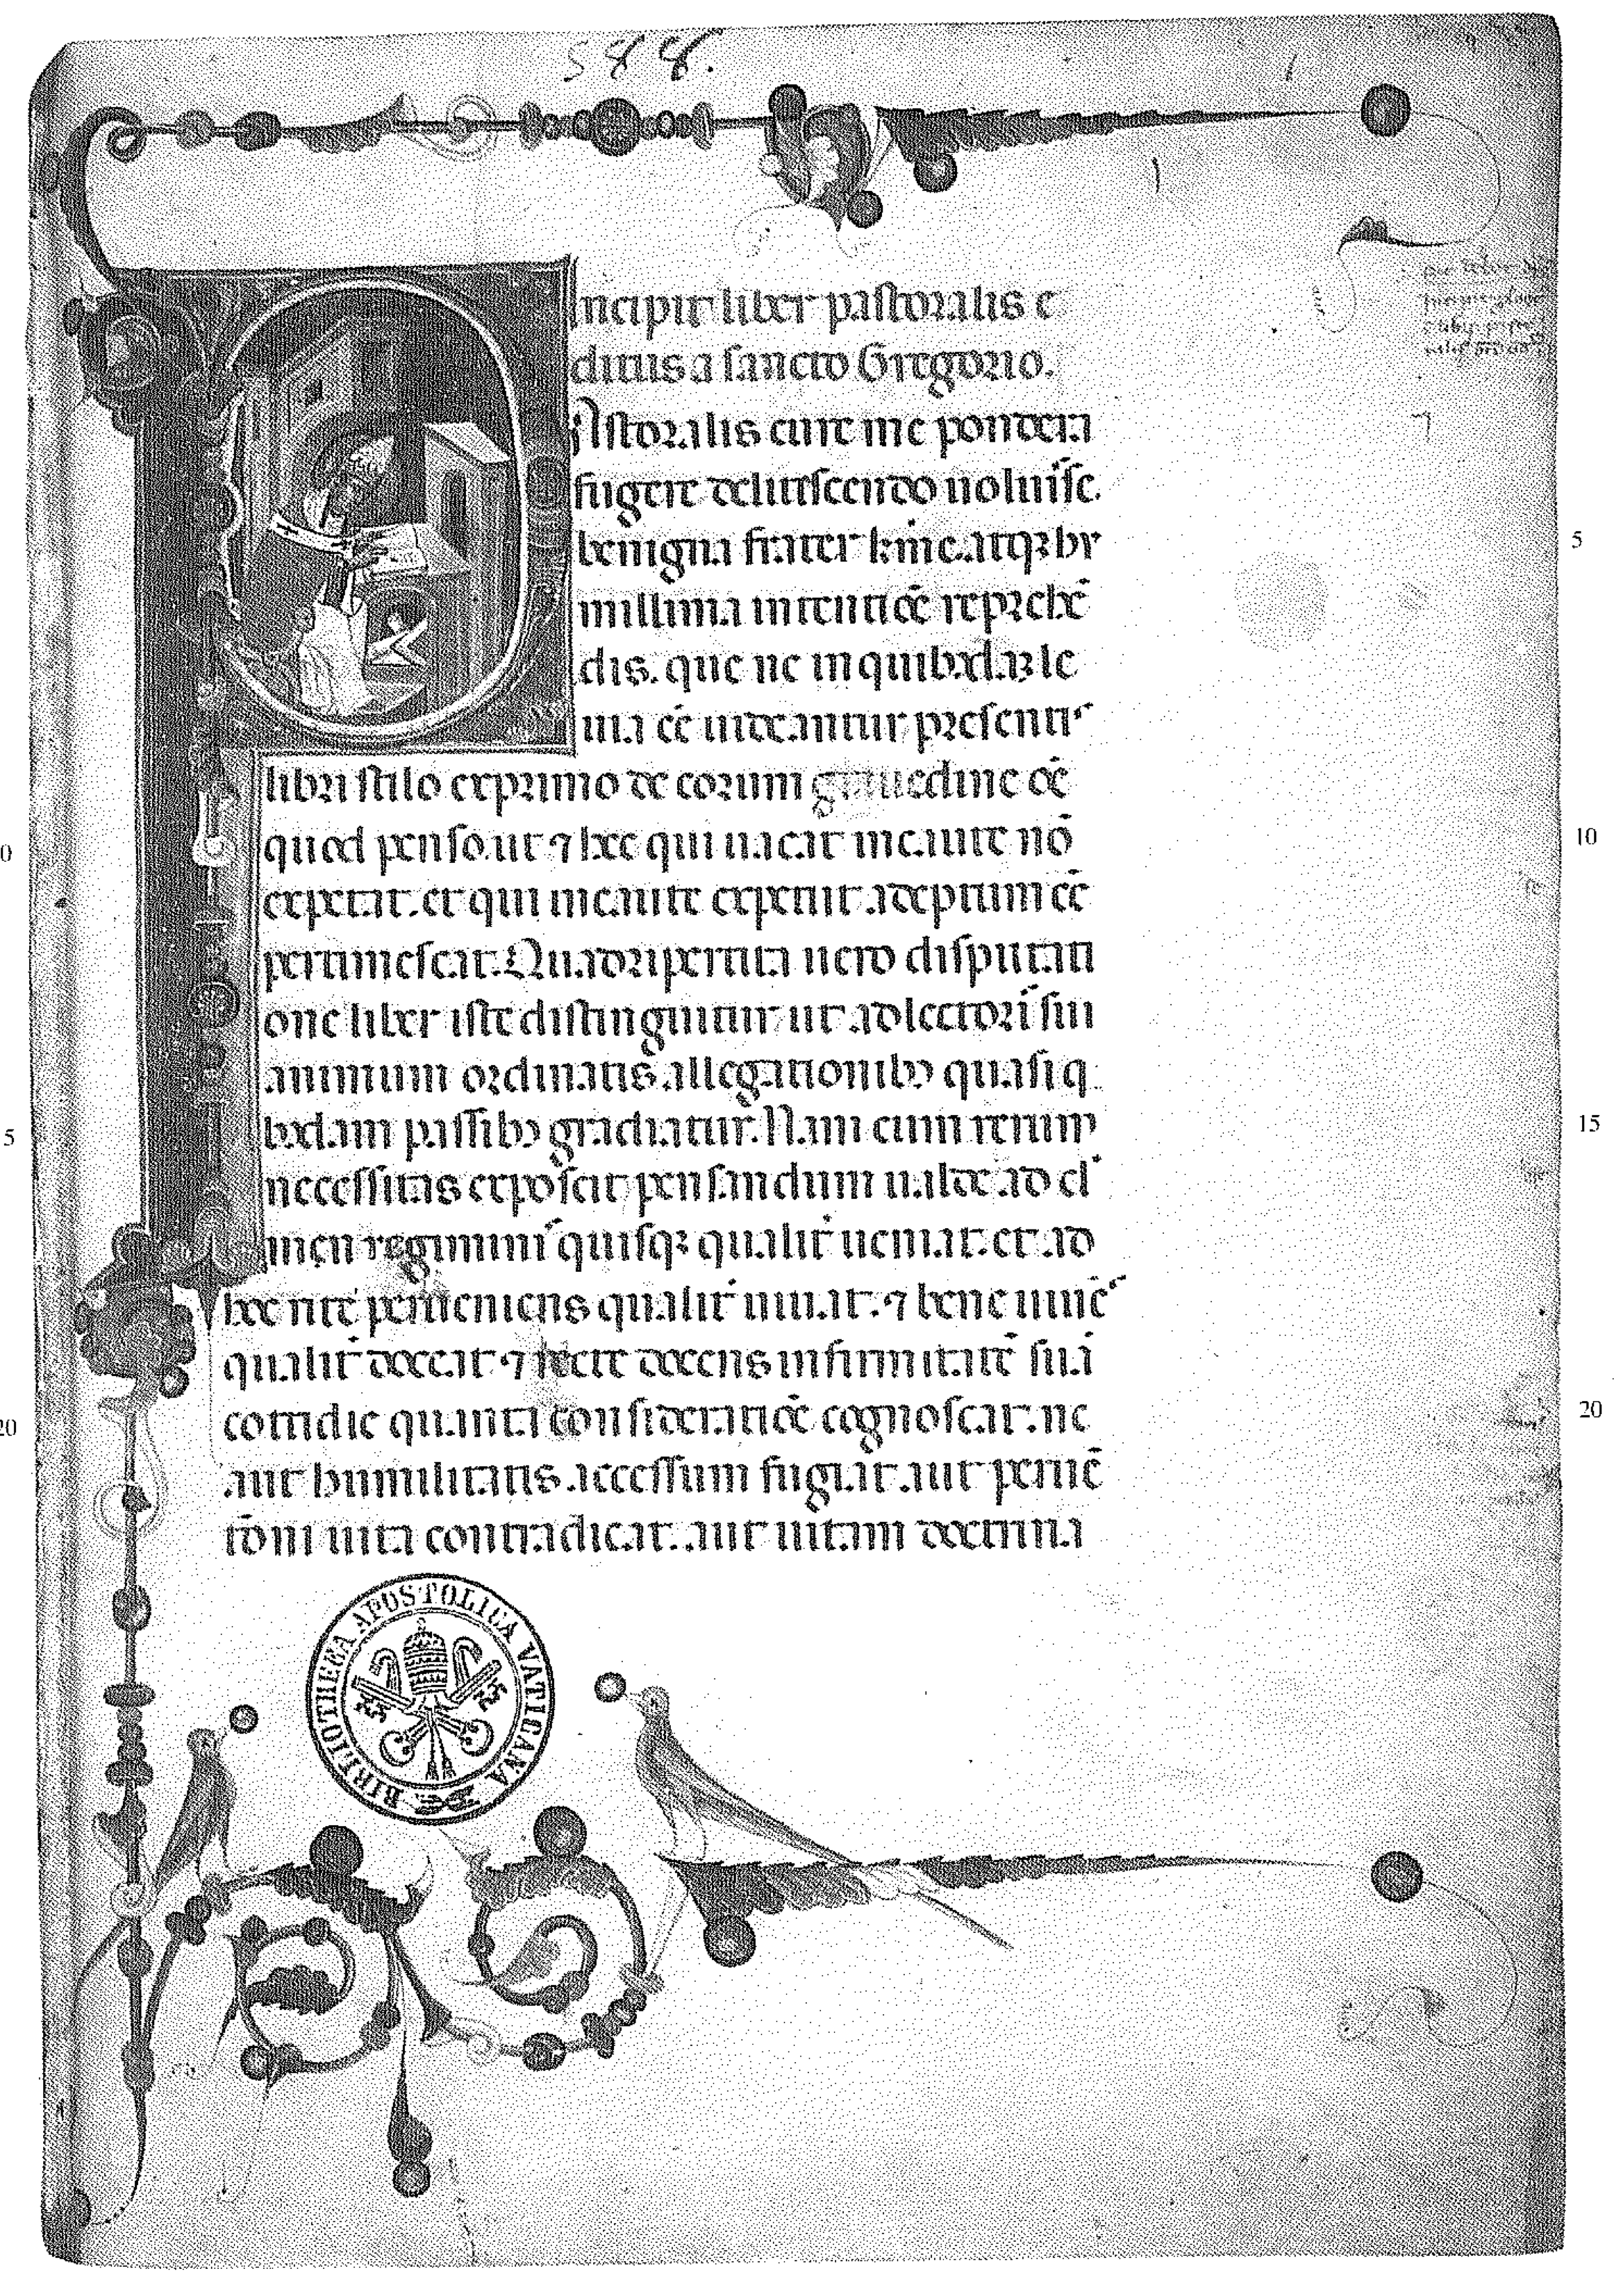 588.
Incipit liber pastoralis e
ditus a sancto Gregorio.
Astoralis cure me pondera
fugere delitescendo uoluisse.
benigna frater kme. atq; hu
millima intentiõe reprehē
dis. que ne in quibusdam le
uia eē uideantur presentis
libri stilo exprimo de eorum grauedine oē
quod penso. ut ⁊ hec qui uacat incaute nō
expetat. et qui incaute expetiit adeptum eē
pertimescat. Quadripertita uero disputati
one liber iste distinguitur ut ad lectoris sui
animum ordinatis allegationibꝰ quasi q
busdam passibꝰ gradiatur. Nam cum rerum
necessitas exposcit pensandum ualde ad cl
men regiminis quisq; qualit̄ ueniat. et ad
hoc rite perueniens qualit̄ uiuat. ⁊ bene uiuēs
qualit̄ doceat ⁊ recte docens infirmitatē suā
cottidie quanta consideratiōe cognoscat. ne
aut humilitatis accessum fugiat aut peruē
tōni uita contradicat. aut uitam doctrina
BIBLIOTHECA APOSTOLICA VATICANA
5
10
15
20